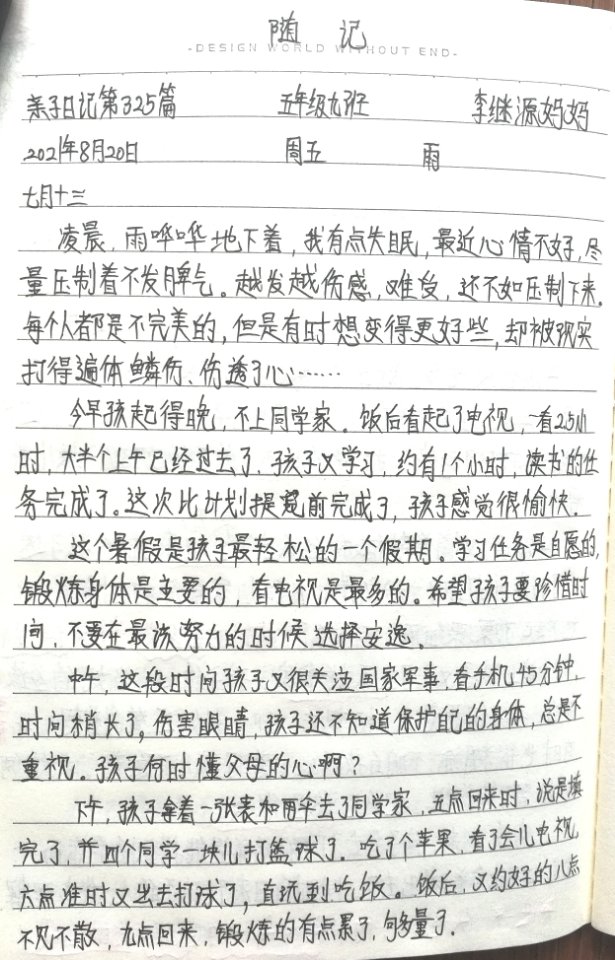 随 记
-DESIGN WORLD WITHOUT END-
亲子日记第325篇 五年级九班 李继源妈妈
2021年8月20日 周五 雨
七月十三
凌晨,雨哗哗地下着,我有点失眠,最近心情不好,尽
量压制着不发脾气。越发越伤感,难受,还不如压制下来。
每个人都是不完美的,但是有时想变得更好些,却被现实
打得遍体鳞伤、伤透了心……
今早孩起得晚,不上同学家。饭后看起了电视,一看2.5小
时,大半个上午已经过去了,孩子又学习,约有1个小时,读书的任
务完成了。这次比计划提前完成了,孩子感觉很愉快.
这个暑假是孩子最轻松的一个假期。学习任务是自愿的,
锻炼身体是主要的,看电视是最多的。希望孩子要珍惜时
间,不要在最该努力的时候选择安逸。
中午,这段时间孩子又很关注国家军事,看手机45分钟,
时间稍长了,伤害眼睛,孩子还不知道保护自己的身体,总是不
重视。孩子何时懂父母的心啊?
下午,孩子拿着一张表和雨伞去了同学家,五点回来时,说是填
完了,并四个同学一块儿打篮球了。吃了个苹果,看了会儿电视,
六点准时又出去打球了,直玩到吃饭。饭后,又约好的八点
不见不散,九点回来,锻炼的有点累了,够多量了.